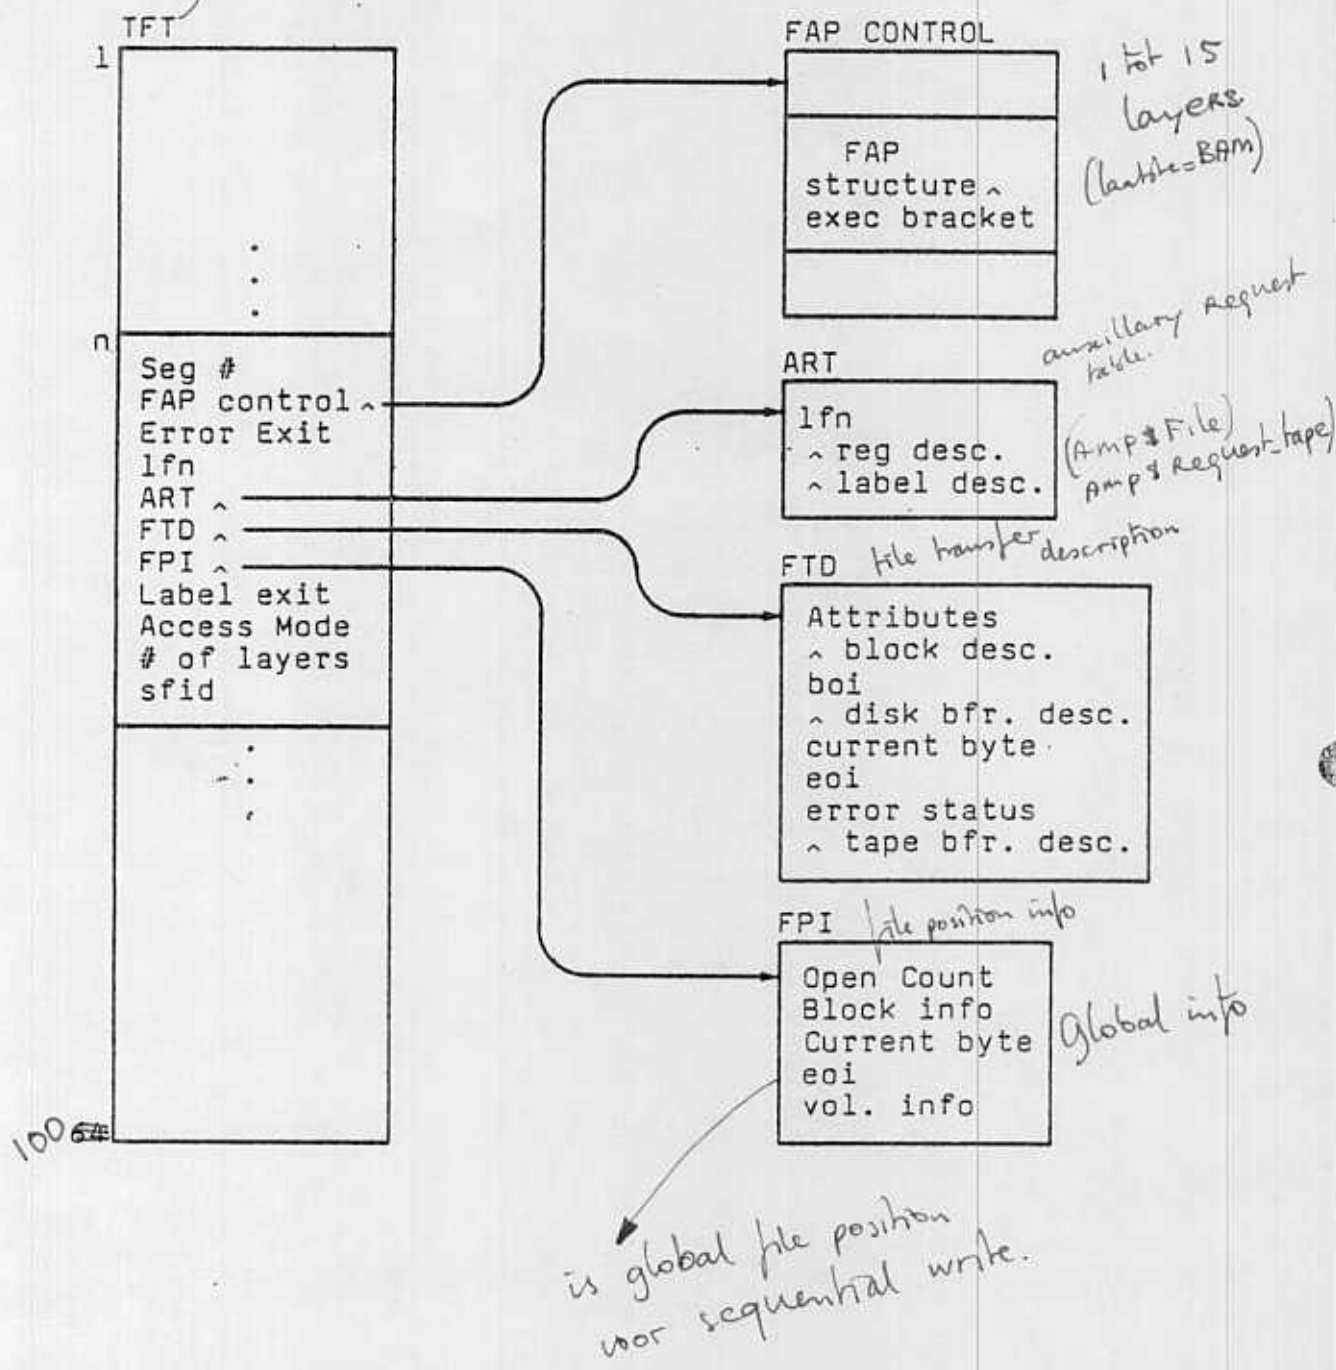 TFT
1
n
Seg #
FAP control ^
Error Exit
lfn
ART ^
FTD ^
FPI ^
Label exit
Access Mode
# of layers
sfid
100 64
FAP CONTROL
FAP
structure ^
exec bracket
1 tot 15
layers
(laatste = BAM)
ART
auxillary request
table.
lfn
^ reg desc.
^ label desc.
(Amp$File)
Amp$Request_tape)
FTD
file transfer description
Attributes
^ block desc.
boi
^ disk bfr. desc.
current byte
eoi
error status
^ tape bfr. desc.
FPI
file position info
Open Count
Block info
Current byte
eoi
vol. info
Global info
is global file position
voor sequential write.